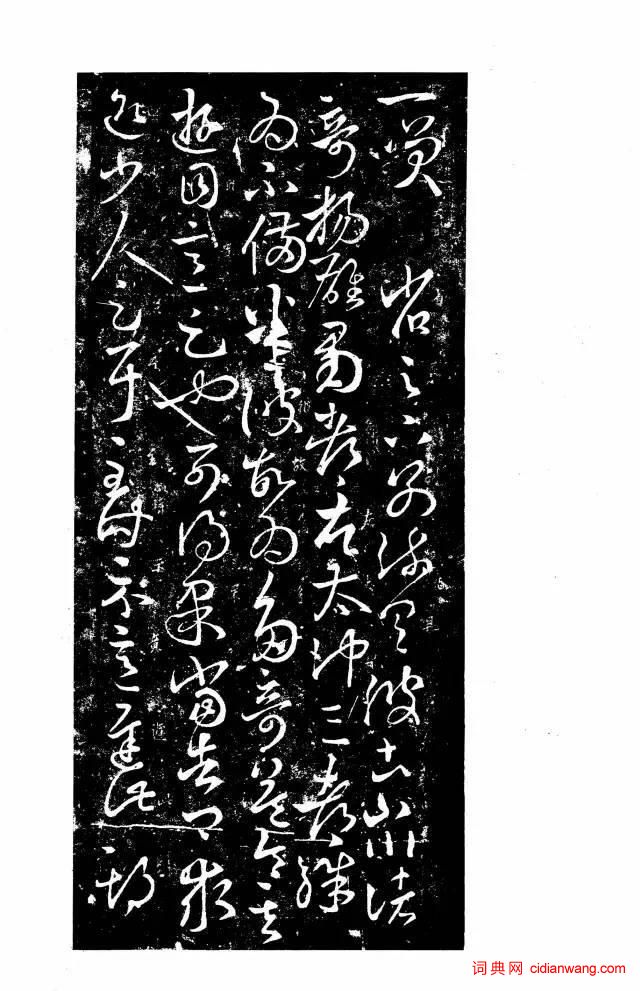 一笑 省足下別疏具彼土山川諸
奇揚雄蜀都左太沖三都殊
為不備悉彼故為多奇益令其
遊目意足也可得果當告卿求
迎少人足耳至時示意遲此期
词典网 cidianwang.com